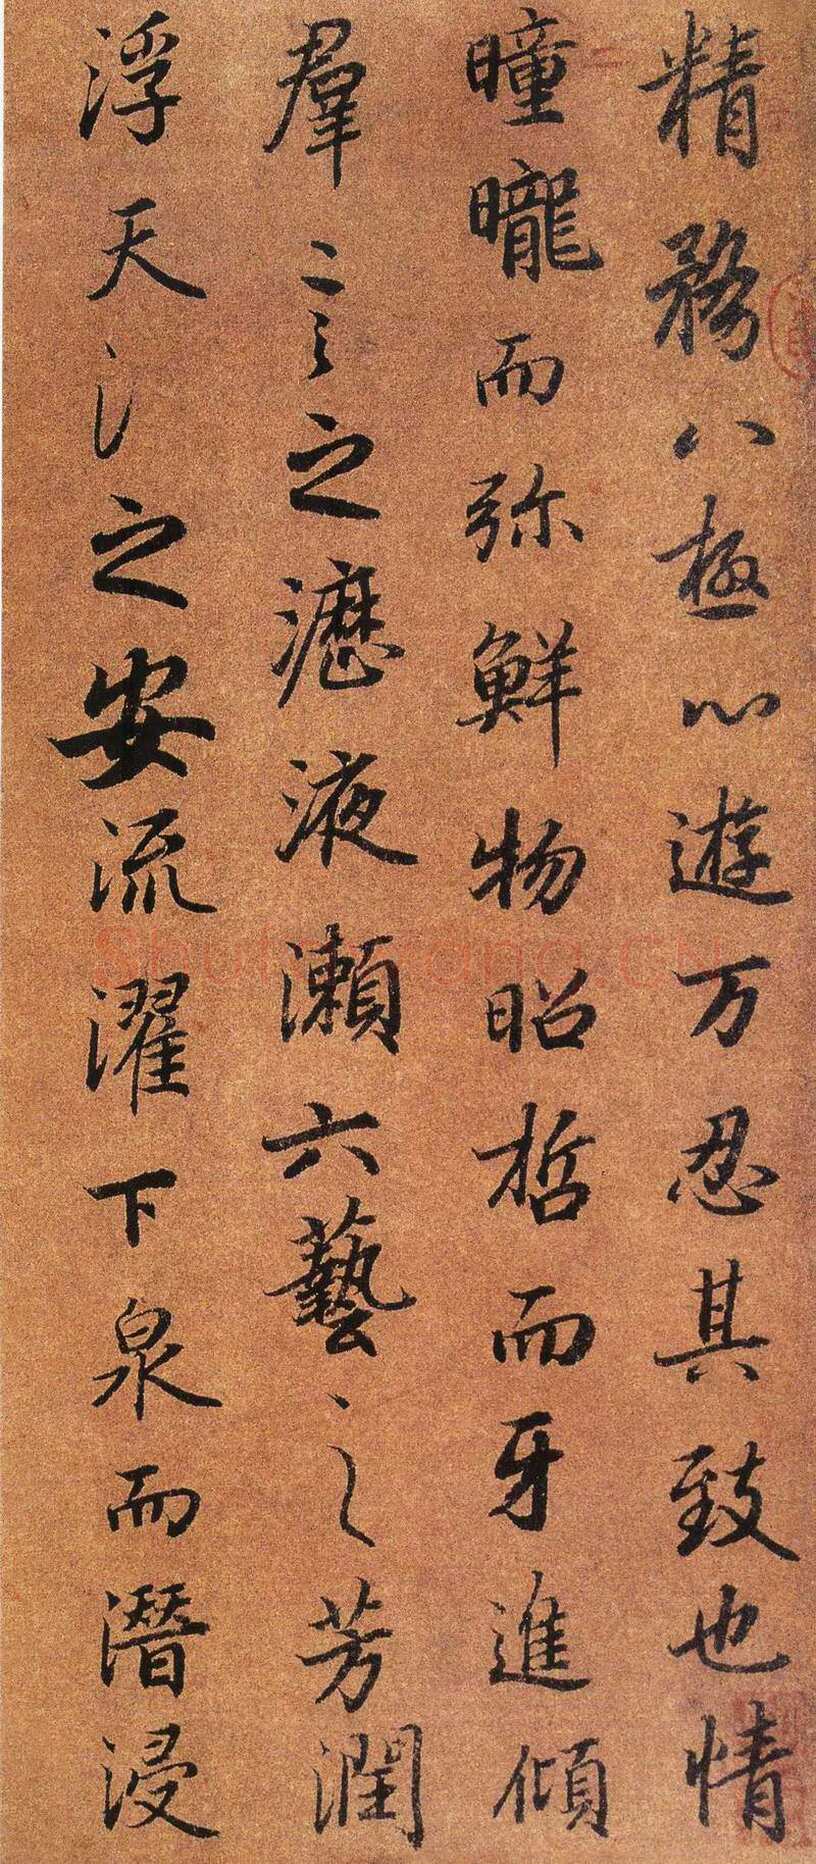 精務八極心遊万忍其致也情
曈曨而弥鮮物昭哲而牙進傾
羣言之瀝液瀬六藝之芳潤
浮天之安流濯下泉而潛浸